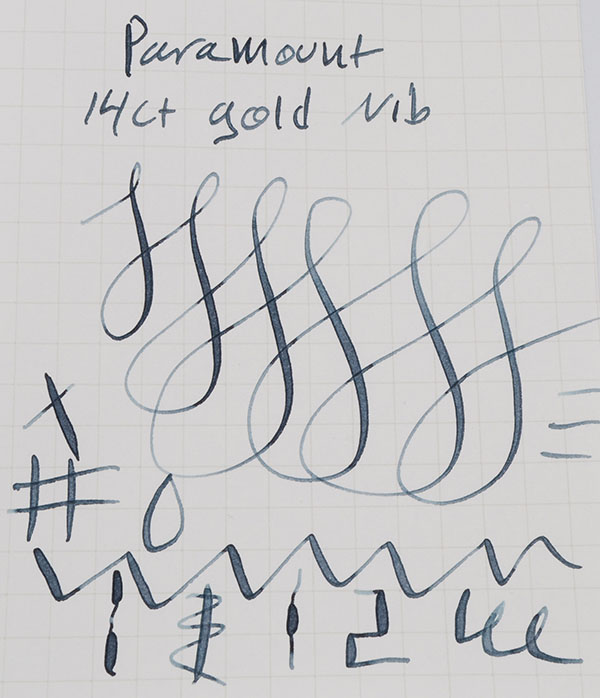 Paramount
14ct gold Nib